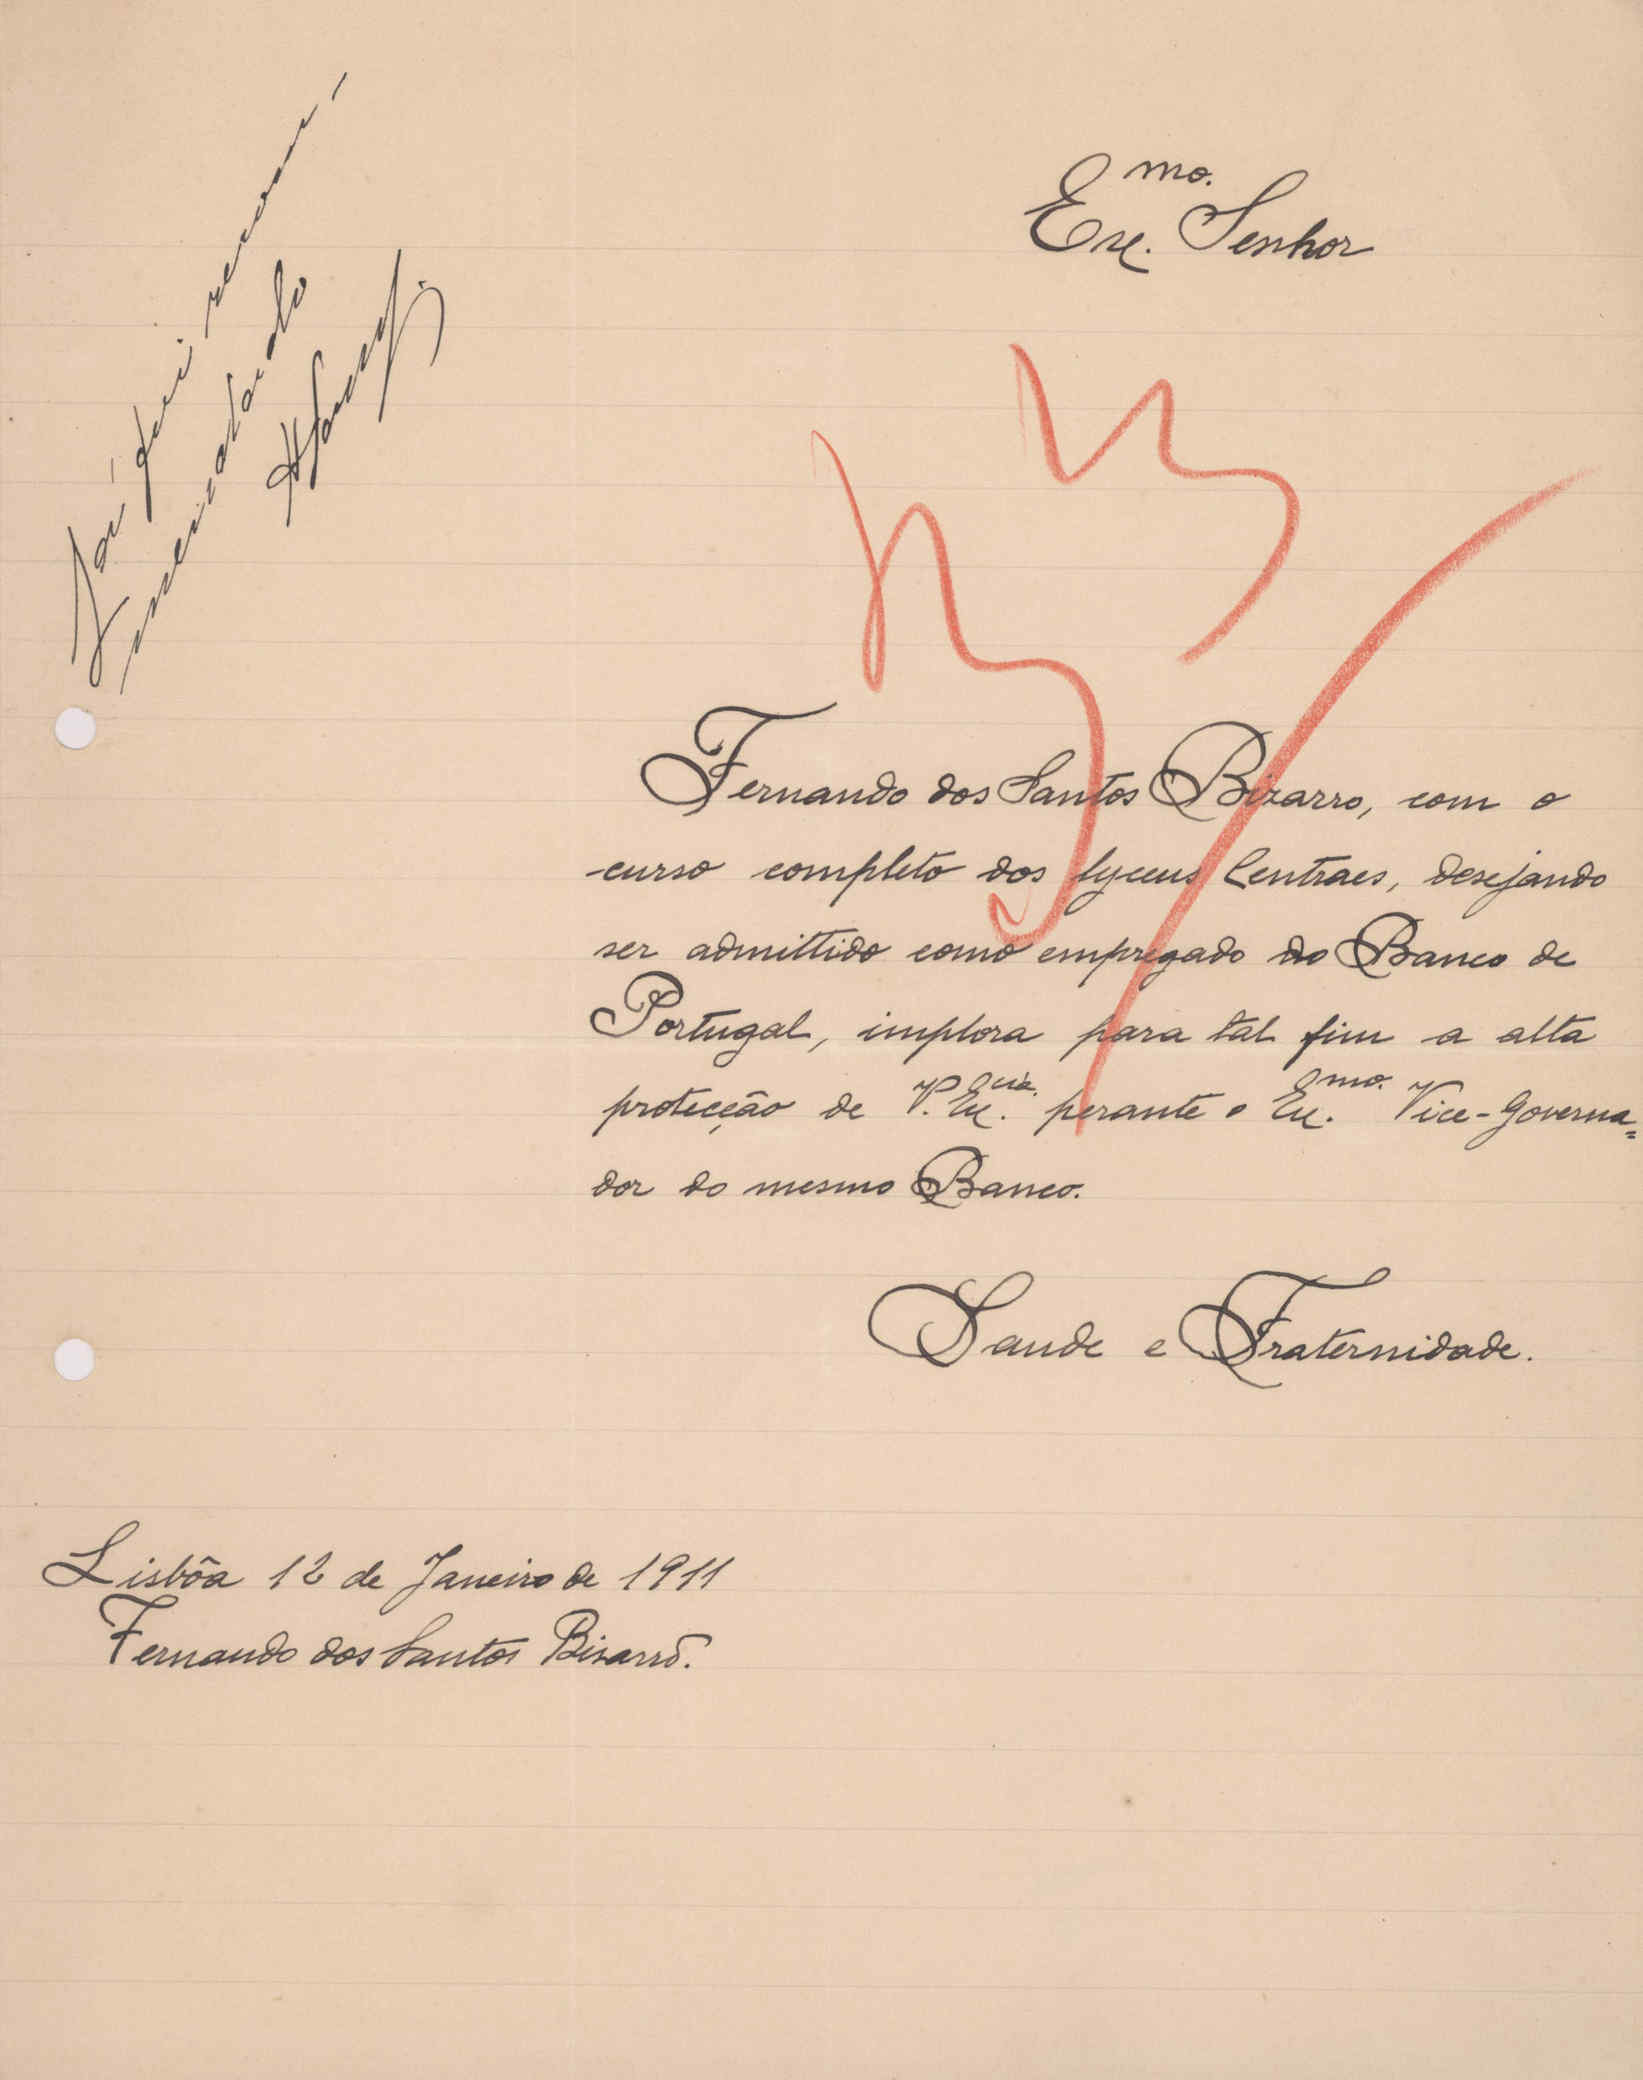 Já foi recom-
mendado
Exc.mo. Senhor
Fernando dos Santos Bizarro, com o
curso completo dos lyceus Centraes, desejando
ser admittido como empregado do Banco de
Portugal, implora para tal fim a alta
protecção de V. Exc.cia. perante o Exc.mo. Vice-Governa=
dor do mesmo Banco.
Saude e Fraternidade.
Lisbôa 12 de Janeiro de 1911
Fernando dos Santos Bizarro.